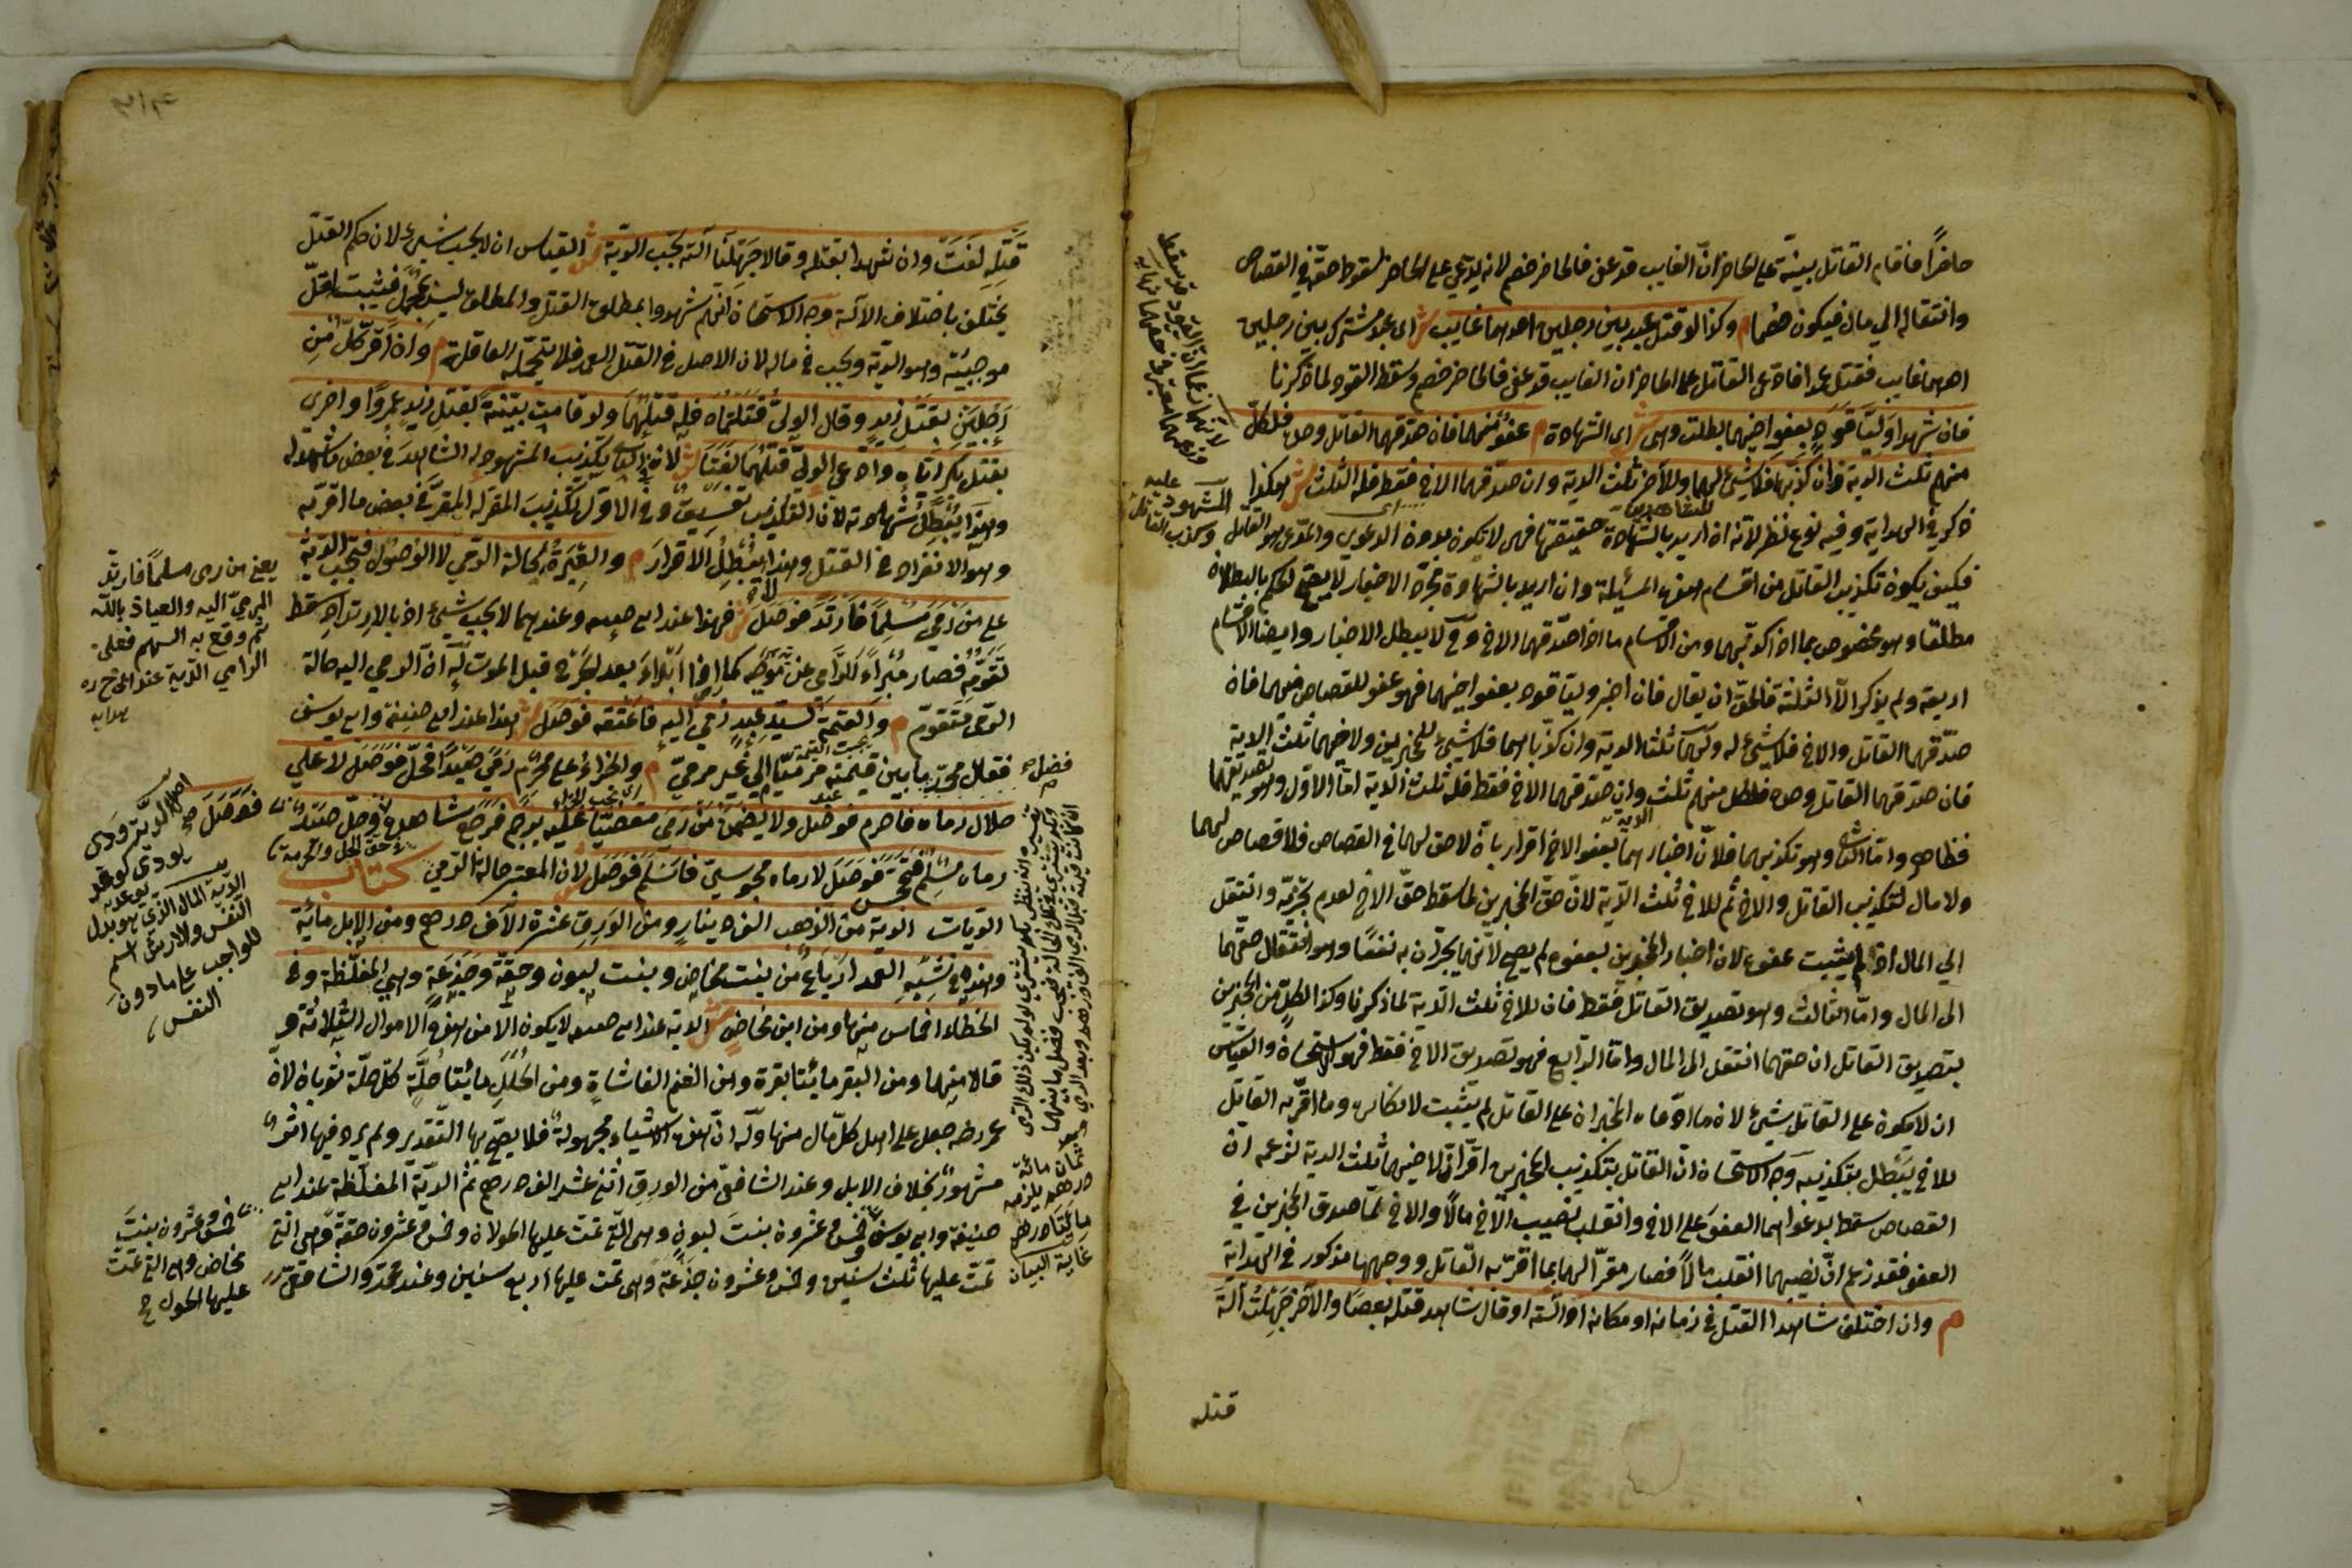 حاضرًا فاقام القاتل بينة على الحاضر ان الغايب قد عفى فالحاضر خصم لانه يدعي على الحاضر سقوط حقه في القصاص
وانتقاله الى مال فيكون خصما م وكذا لو قتل عبد بين رجلين احدهما غايب ش اى عبد مشترك بين رجلين
احدهما غايب فقتل عمدا فادعى القاتل على الحاضر ان الغايب قد عفى فالحاضر خصم وسقط القود لما ذكرنا
فان شهد وليا قود بعفو اخيهما بطلت وهى ش اى الشهادة م عفو منهما فان صدقهما القاتل وحده فلكل
منهم ثلث الدية وان كذبهما فلا شيء لهما وللآخر ثلث الدية وان صدقهما الاخ فقط فله الثلث ش هكذا
ذكر في الهداية وفيه نوع نظر لانه ان اريد بالشهادة حقيقتها فهى لا تكون بدون الدعوي والمدعى هو القاتل
فكيف يكون تكذيب القاتل من اقسام هذه المسئلة وان اريد بالشهادة مجرد الاخبار لا يصح الحكم بالبطلان
مطلقا وهو مخصوص بما اذا كذبهما ومن الاقسام ما اذا صدقهما الاخ وح لا يبطل الاخبار وايضا الاقسام
اربعة ولم يذكر الا الثلثة فالحق ان يقال فان اخبر وليا قود بعفو اخيهما فهو عفو للقصاص منهما فان
صدقهما القاتل والاخ فلا شيء له ولهما ثلثا الدية وان كذباهما فلا شيء للمخبرين ولاخيهما ثلث الدية
فان صدقهما القاتل وحده فلكل منهم ثلث وان صدقهما الاخ فقط فله ثلث الدية اما الاول وهو تصديقهما
فظاهر واما الثاني وهو تكذيبهما فلان اخبارهما بعفو الاخ اقرار بان لا حق لهما في القصاص فلا قصاص لهما
ولا مال لتكذيب القاتل والاخ ثم للاخ ثلث الدية لان حق المخبرين لما سقط حق الاخ لعدم تجزيه وانتقل
الى المال اذ لم يثبت عفوه لان اخبار المخبرين بعفوه لم يصح لانهما يجران به نفعًا وهو انتقال حقهما
الى المال واما الثالث وهو تصديق القاتل فقط فان للاخ ثلث الدية لما ذكرنا وكذا لكل من المخبرين
بتصديق القاتل ان حقهما انتقل الى المال واما الرابع فهو تصديق الاخ فقط فهو استحسان والقياس
ان لا يكون على القاتل شيئ لان ما ادعاه المخبران على القاتل لم يثبت لانكاره وما اقر به القاتل
للاخ يبطل بتكذيبه وجه الاستحسان ان القاتل بتكذيب المخبرين اقر ان لاخيهما ثلث الدية لزعمه ان
القصاص سقط بدعواهما العفو على الاخ وانقلب نصيب الاخ مالا والاخ لما صدق المخبرين في
العفو فقد زعم ان نصيبهما انقلب مالا فصار مقرا لهما بما اقر به القاتل ووجهها مذكور في الهداية
م وان اختلف شاهدا القتل في زمانه او مكانه او آلته او قال شاهد قتله بعصا والآخر جهلت آلة
قتله
قتله لغت وان شهدا بقتله وقالا جهلنا آلته تجب الدية ش القياس ان لا يجب شيئ لان حكم القتل
يختلف باختلاف الآلة وجه الاستحسان انهم شهدوا بمطلق القتل والمطلق ليس بمجمل فيثبت اقل
موجبيه وهو الدية وتجب في ماله لان الاصل في القتل العمد فلا يتحمله العاقلة م وان اقر كل من
رجلين بقتل زيد وقال الولى قتلتماه فله قتلهما ولو قامت بينة بقتل زيد عمروا واخرى
بقتل بكر اياه وادعى الولى قتلهما لغتا ش لان في الثاني تكذيب المشهود له الشاهد في بعض ما شهد له
وهذا يبطل شهادته لان التكذيب تفسيق وفي الاول تكذيب المقر له المقر في بعض ما اقر به
وهو الانفراد في القتل وهذا لا يبطل الاقرار م والعبرة لحالة الرمي لا الوصول فتجب الدية
على من رمى مسلما فارتد فوصل ش فهذا عند ابي حنيفة وعندهما لا يجب شيئ اذ بالارتداد سقط
تقومه فصار مبرأ للرامى عن موجبه كما اذا ابراه بعد الجرح قبل الموت له ان الرمي اليه حالة
الرمى متقوم م والقيمة لسيد عبد رمي اليه فاعتقه فوصل ش هذا عند ابي حنيفة وابي يوسف
فقال محمد ما بين قيمته مرميا الى غير مرمى م والجزاء على محرم رمى صيدا فحل فوصل لا على
حلال رماه فاحرم فوصل ولا يضمن من رمى مقضيا عليه برجم فرجع شاهده وحل صيد
رماه مسلم فتمجس فوصل لا رماه مجوسي فاسلم فوصل ش لان المعتبر حالة الرمي كتاب
الديات الدية من الذهب الف دينار ومن الورق عشرة الآف درهم ومن الابل مائة
وهذه في شبه العمد ارباع من بنت مخاض وبنت لبون وحقة وجذعة وهي المغلظة وفي
الخطاء اخماس منها ومن ابن مخاض ش الدية عند ابي حنيفة لا يكون الا من هذه الاموال الثلاثة و
قالا منها ومن البقر مائتا بقرة ومن الغنم الفا شاة ومن الحلل مائتا حلة كل حلة ثوبان لان
عمر رضه جعل على اهل كل مال منها وله ان هذه الاشياء مجهولة فلا يصح بها التقدير ولم يرد فيها اثر
مشهور بخلاف الابل وعند الشافعي من الورق اثنى عشر الف درهم ثم الدية المغلظة عند ابي
حنيفة وابي يوسف خمس وعشرون بنت لبون وهى التي تمت عليها الحولان وخمس وعشرون حقة وهى التي
تمت عليها ثلث سنين وخمس وعشرون جذعة وهى تمت عليها اربع سنين وعند محمد والشافعي
يعني من رمى مسلما فارتد
المرمي اليه والعياذ بالله
ثم وقع به السهم فعلى
الرامي الدية عند ابى ح ره
هدايه
اصل الدية ودى
يودى كوعد
يوعد
الدية المال الذي هو بدل
النفس والارش اسم
للواجب على ما دون
النفس
خمس وعشرون بنت
مخاض وهى التي تمت
عليها الحول
ثمان مائة
درهم يلزمه
مائتا درهم
غاية البيان